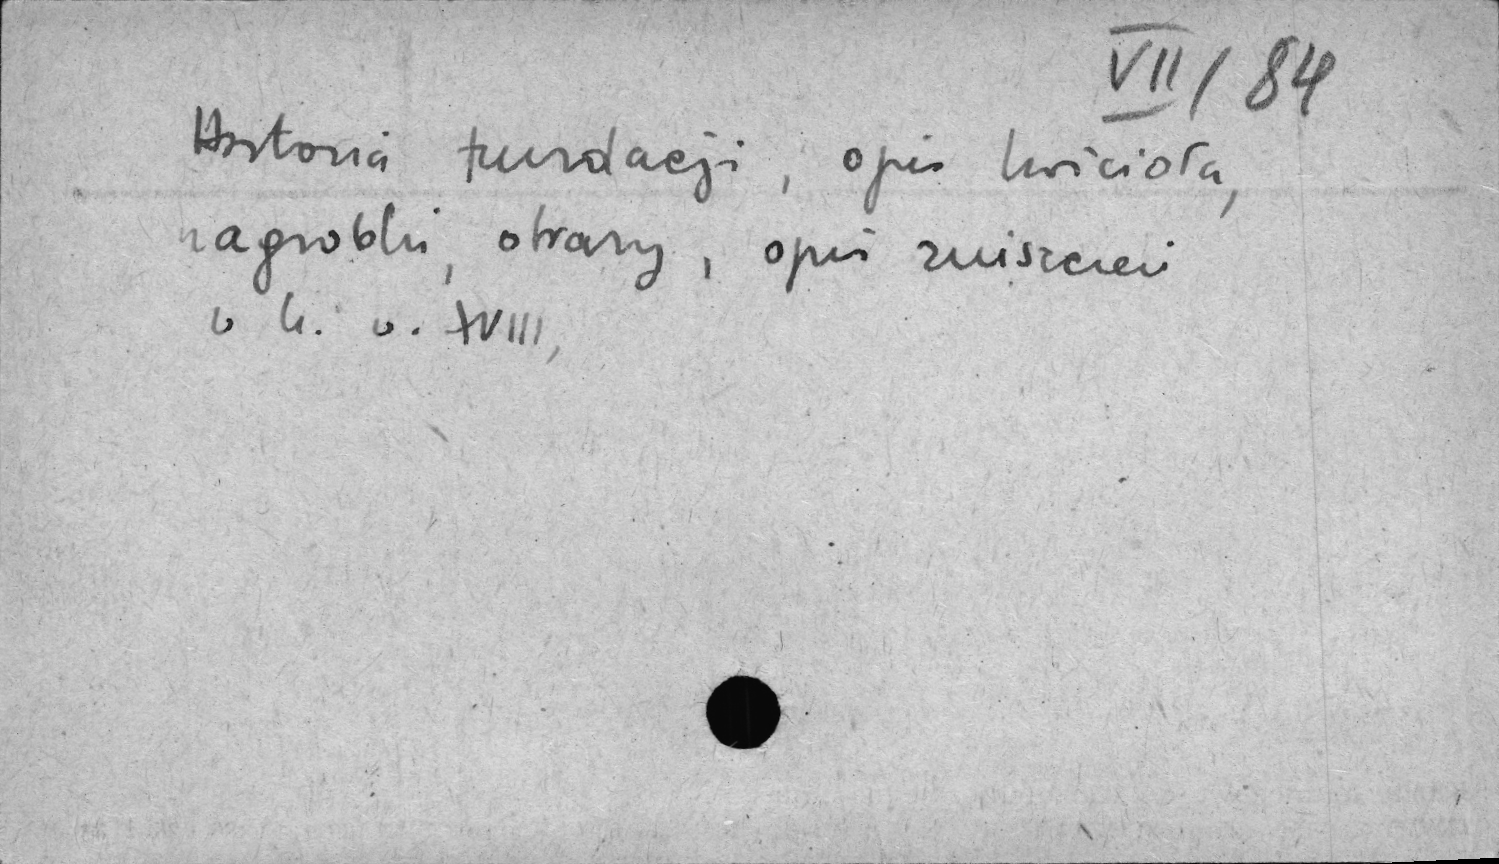 VII / 84
Historia fundacji, opis kościoła,
nagrobki, obrazy, opis zniszczeń
w k. w. XVIII,